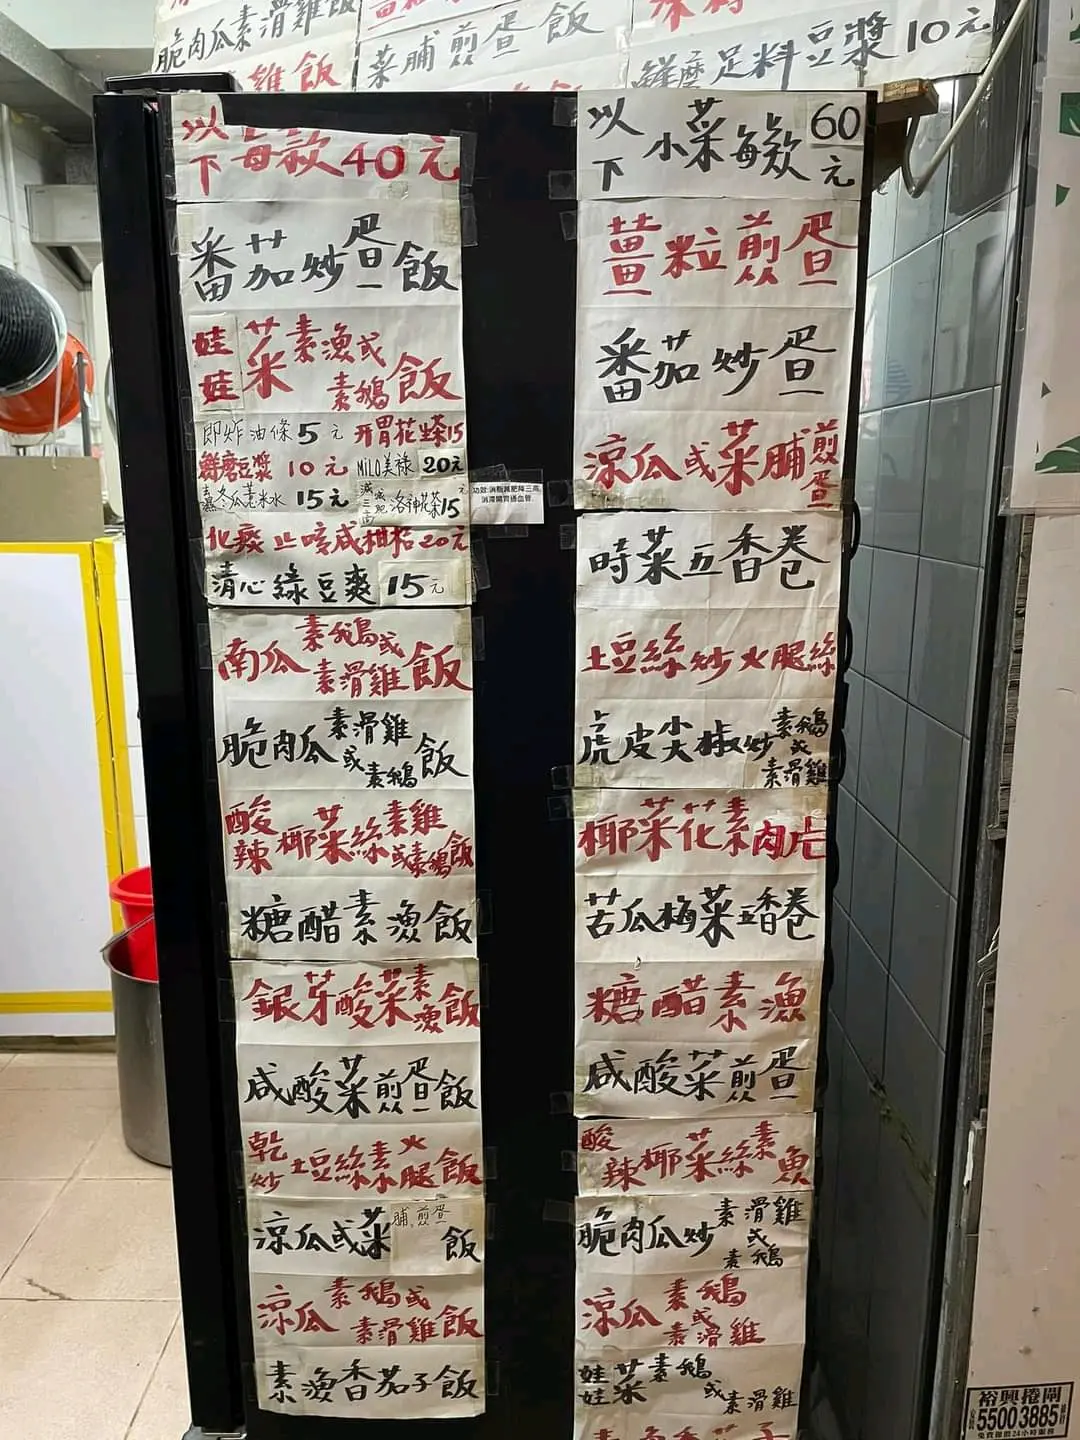 脆肉瓜素滑雞飯
雞飯
菜脯煎蛋飯
鮮磨足料豆漿10元
以下每款40元
番茄炒蛋飯
娃娃菜素漁或素鵝飯
即炸油條5元
開胃花生茶15
鮮磨豆漿10元
MILO美祿20元
素冬瓜薏米水15元
減三高減肥洛神花茶15元
功效:消脂減肥降三高
消滯開胃通血管
化痰止咳咸柑桔20元
清心綠豆爽15元
南瓜素鵝或素滑雞飯
脆肉瓜素滑雞或素鵝飯
酸辣椰菜絲素雞或素鵝飯
糖醋素漁飯
銀芽酸菜素漁飯
咸酸菜煎蛋飯
乾炒土豆絲素火腿飯
涼瓜或菜脯煎蛋飯
涼瓜素鵝或素滑雞飯
素漁香茄子飯
以下小菜每款60元
薑粒煎蛋
番茄炒蛋
涼瓜或菜脯煎蛋
時菜五香卷
土豆絲炒火腿絲
虎皮尖椒炒素鵝或素滑雞
椰菜花素肉片
苦瓜梅菜五香卷
糖醋素漁
咸酸菜煎蛋
酸辣椰菜絲素魚
脆肉瓜炒素滑雞或素鵝
涼瓜素鵝或素滑雞
娃娃菜素鵝或素滑雞
裕興捲閘
5500 3885